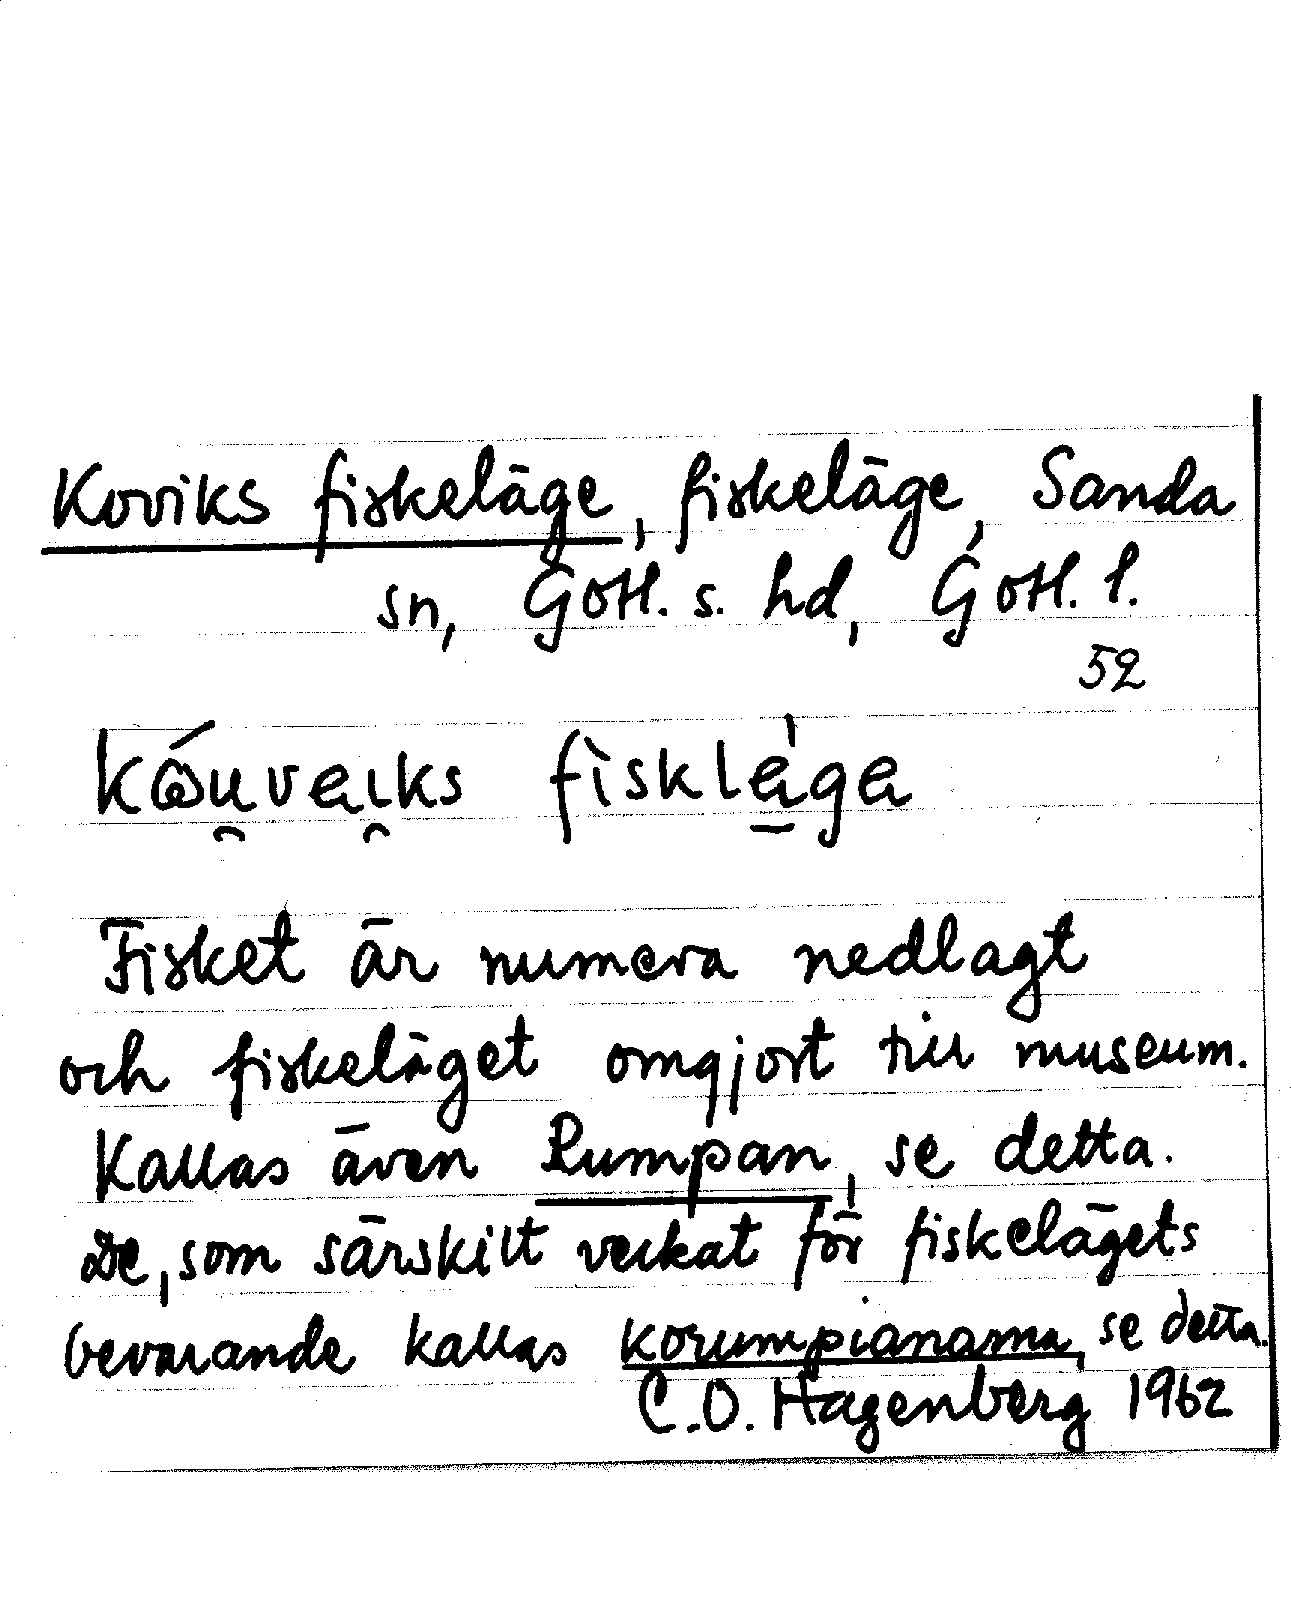 Koviks fiskeläge, fiskeläge, Sanda
sn, Gotl. s. hd, Gotl. l.
52
Fisket är numera nedlagt
och fiskeläget omgjort till museum.
Kallas även Rumpan, se detta.
De, som särskilt verkat för fiskelägets
bevarande kallas korumpianarna, se detta.
C.O. Hagenberg 1962